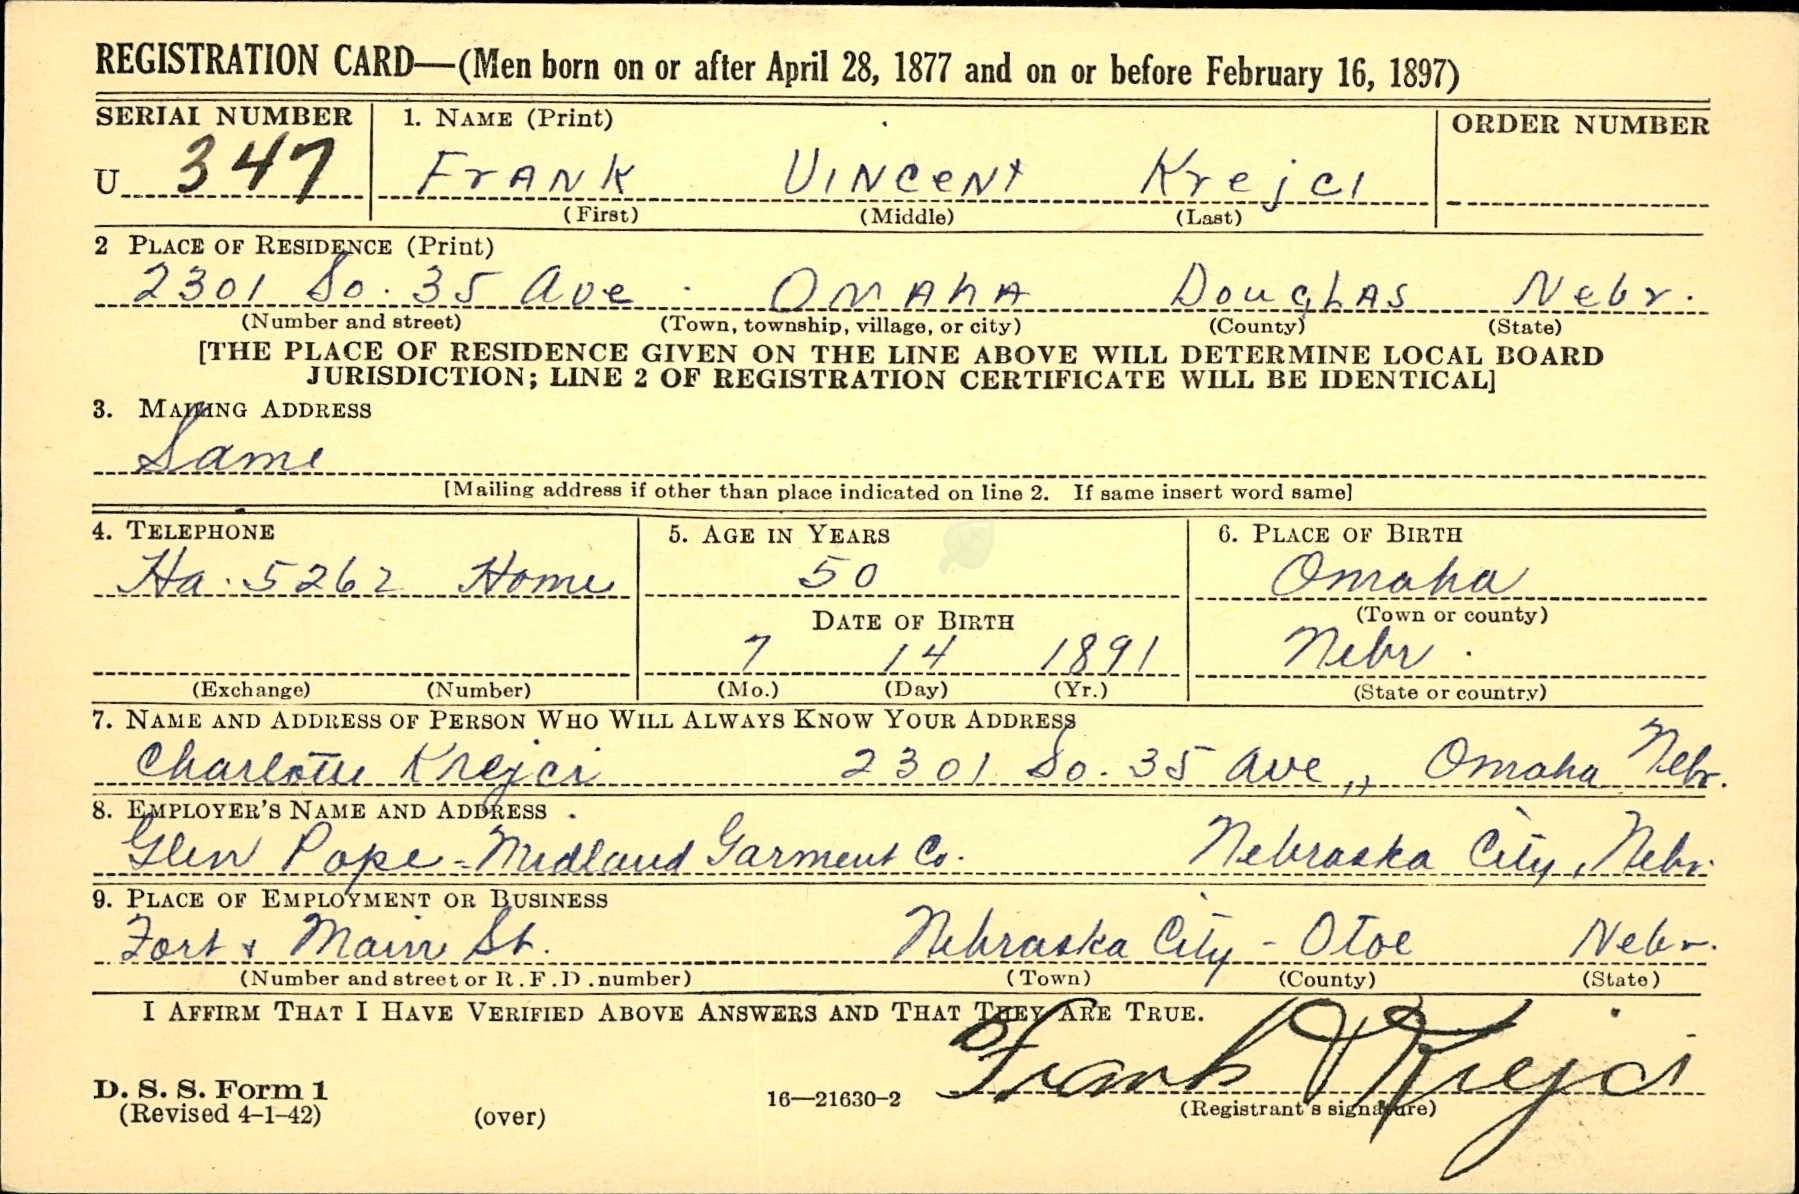 REGISTRATION CARD—(Men born on or after April 28, 1877 and on or before February 16, 1897)
SERIAL NUMBER 1. NAME (Print) ORDER NUMBER
U 347 FrANK VINCENT Krejci
(First) (Middle) (Last)
2 PLACE OF RESIDENCE (Print)
2301 So. 35 Ave. OMAHA DougLAS Nebr.
(Number and street) (Town, township, village, or city) (County) (State)
[THE PLACE OF RESIDENCE GIVEN ON THE LINE ABOVE WILL DETERMINE LOCAL BOARD
JURISDICTION; LINE 2 OF REGISTRATION CERTIFICATE WILL BE IDENTICAL]
3. MAILING ADDRESS
Same
[Mailing address if other than place indicated on line 2. If same insert word same]
4. TELEPHONE 5. AGE IN YEARS 6. PLACE OF BIRTH
Ha. 5262 Home 50 Omaha
DATE OF BIRTH (Town or county)
7 14 1891 Nebr.
(Exchange) (Number) (Mo.) (Day) (Yr.) (State or country)
7. NAME AND ADDRESS OF PERSON WHO WILL ALWAYS KNOW YOUR ADDRESS
Charlotte Krejci 2301 So. 35 Ave., Omaha Nebr.
8. EMPLOYER'S NAME AND ADDRESS
Glen Pope - Midland Garment Co. Nebraska City, Nebr.
9. PLACE OF EMPLOYMENT OR BUSINESS
Fort & Main St. Nebraska City - Otoe Nebr.
(Number and street or R.F.D. number) (Town) (County) (State)
I AFFIRM THAT I HAVE VERIFIED ABOVE ANSWERS AND THAT THEY ARE TRUE.
Frank V Krejci
D. S. S. Form 1
(Revised 4-1-42) (over) 16—21630-2 (Registrant's signature)